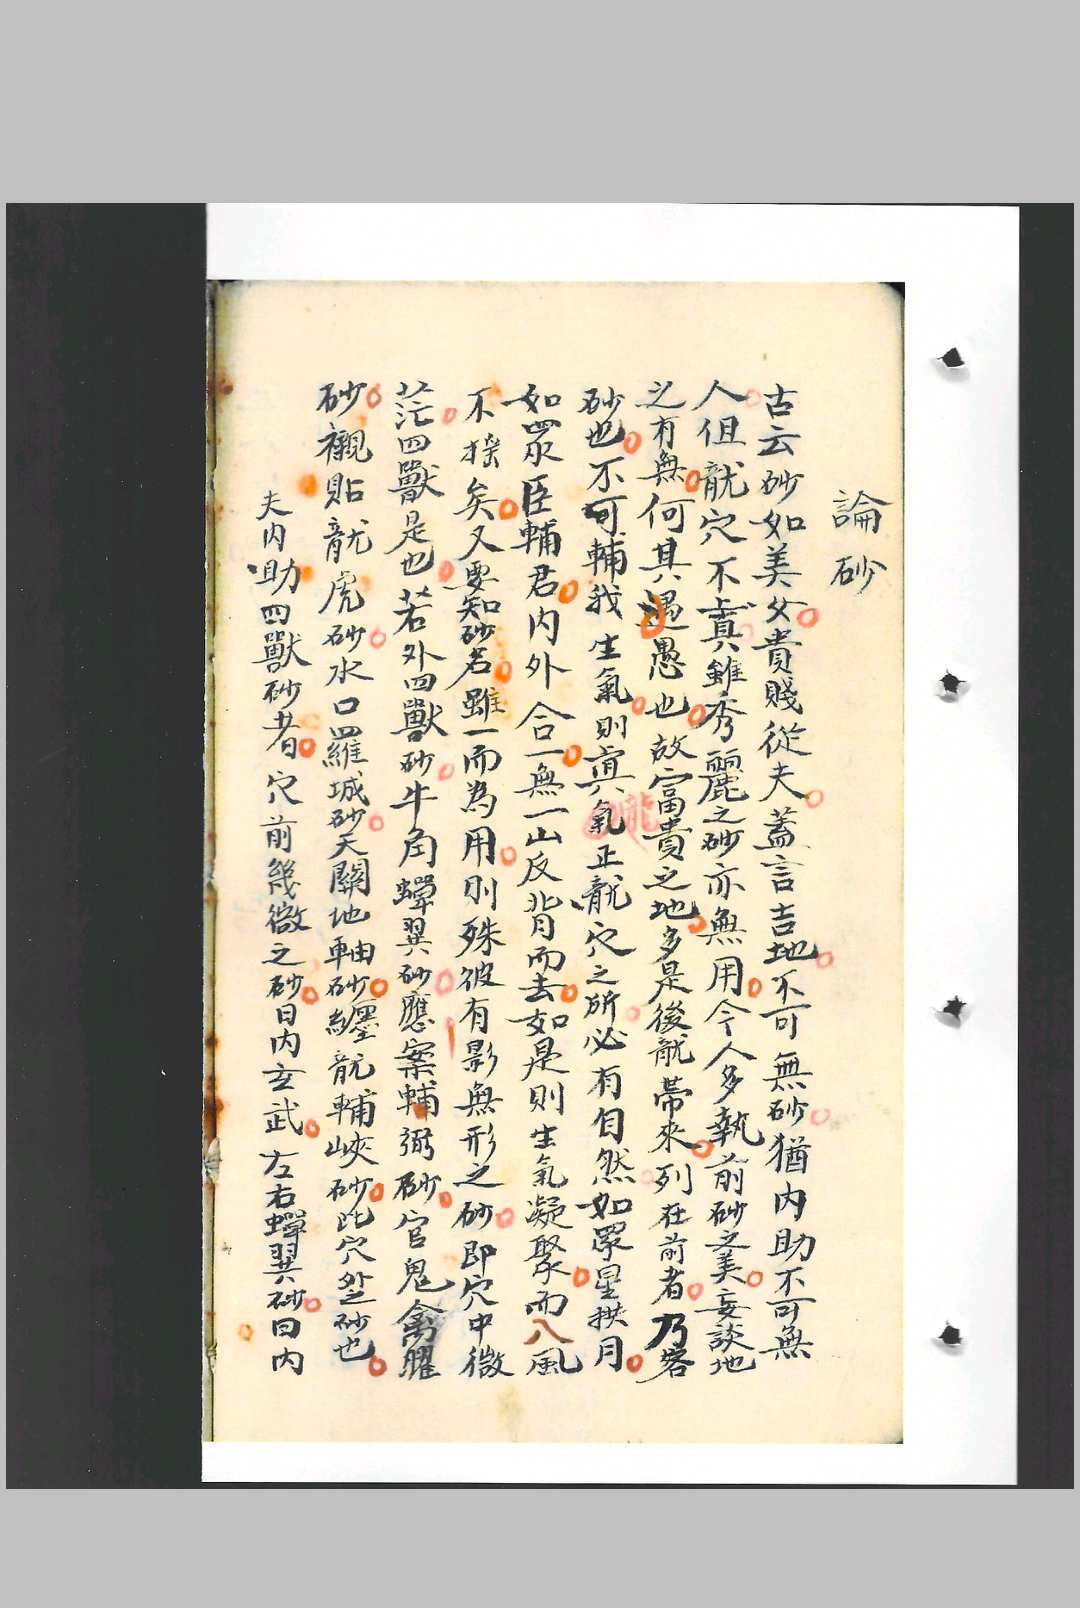 論砂
古云砂如美女貴賤從夫蓋言吉地不可無砂猶內助不可無
人但龍穴不真雖秀麗之砂亦無用今人多執前砂之美妄談地
之有無何其愚也故富貴之地多是後龍帶來列在前者乃客
砂也不可輔我生氣則真氣正龍穴之所必有自然如眾星拱月
如眾臣輔君內外合一無一山反背而去如是則生氣凝聚而八風
不搖矣又要知砂名雖一而為用則殊彼有影無形之砂即穴中微
茫四獸是也若外四獸砂牛角蟬翼砂應案輔弼砂官鬼禽曜
砂襯貼龍虎砂水口羅城砂天關地軸砂纏龍輔峽砂此穴外之砂也
夫內助四獸砂者穴前幾微之砂曰內玄武左右蟬翼砂曰內